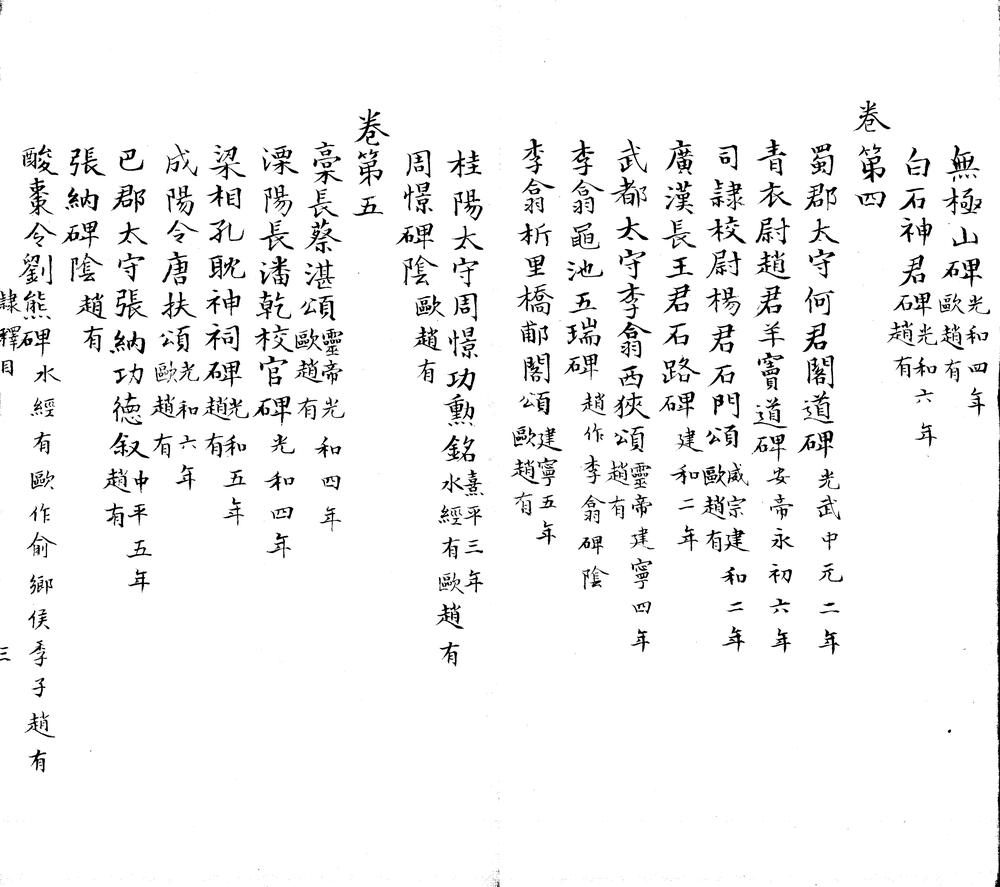 無極山碑光和四年歐趙有
白石神君碑光和六年趙有
卷第四
蜀郡太守何君閣道碑光武中元二年
青衣尉趙君羊竇道碑安帝永初六年
司隸校尉楊君石門頌威宗建和二年歐趙有
廣漢長王君石路碑建和二年
武都太守李翕西狹頌靈帝建寧四年趙有
李翕黽池五瑞碑趙作李翕碑陰
李翕析里橋郙閣頌建寧五年歐趙有
桂陽太守周憬功勳銘熹平三年水經有歐趙有
周憬碑陰歐趙有
卷第五
稾長蔡湛頌靈帝光和四年歐趙有
溧陽長潘乾校官碑光和四年
梁相孔耽神祠碑光和五年趙有
成陽令唐扶頌光和六年歐趙有
巴郡太守張納功德叙中平五年趙有
張納碑陰趙有
酸棗令劉熊碑水經有歐作俞鄉侯季子趙有
隸釋目
三